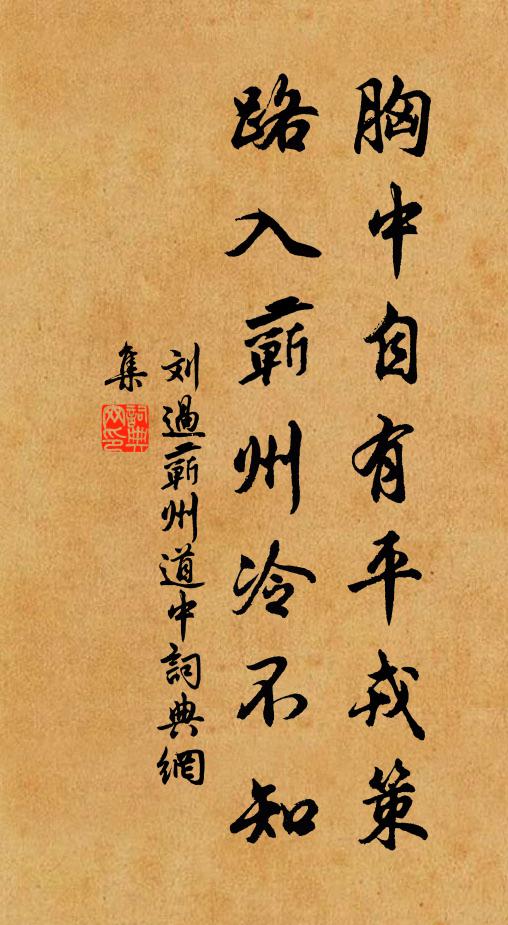 胸中自有平戎策
路入蕲州冷不知
刘過蕲州道中詞典網
集
詞典網印